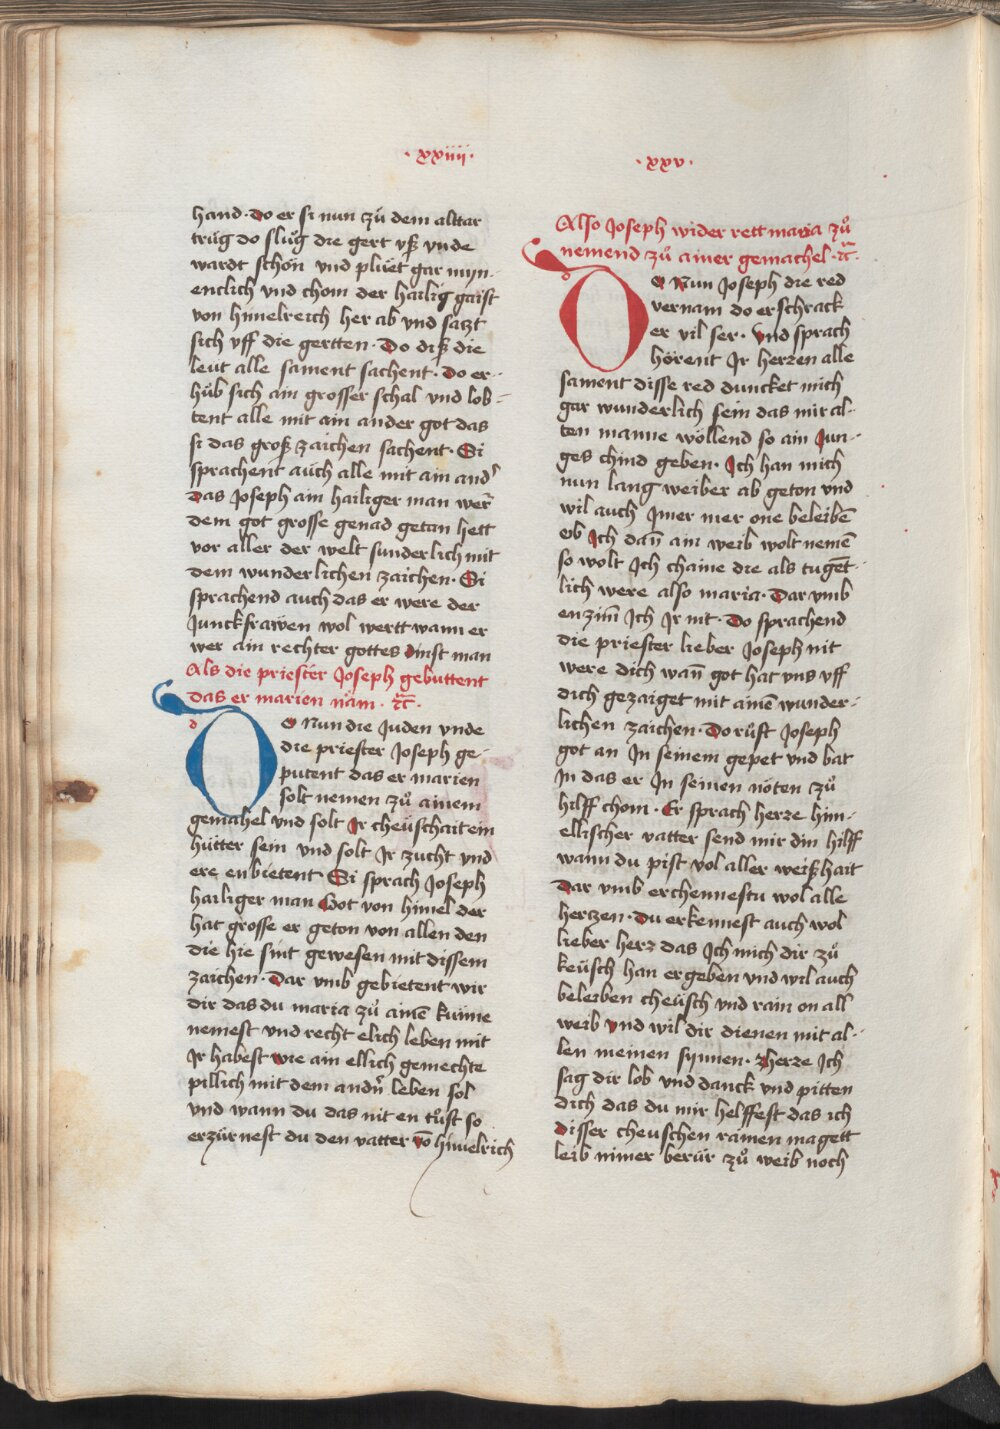 ·xxiiii·
hand · do er si nun zů dem alttar
trůg do slůg die gert vß vnde
wardt schön vnd plůet gar myn-
enclich vnd chom der hailig gaist
von himelreich her ab vnd satzt
sich vff die gertten · Do diß die
leut alle sament sachent · do er-
hůb sich ain grosser schal vnd lob-
tent alle mit ain ander got das
si das groß zaichen sachent · Si
sprachent auch alle mit ain and'
Das Joseph ain hailiger man wer
dem got grosse genad getan hett
vor aller der welt sunderlich mit
dem wunderlichen zaichen · Si
sprachend auch das er were der
Junckfrawen wol wertt wann er
wer ain rechter gottes dinst man
Als die priester Joseph gebuttent
das er marien nam · ꝛc̄ ·
d
O Nun die Juden vnde
die priester Joseph ge-
putent das er marien
solt nemen zů ainem
gemahel vnd solt Jr cheüschait ein
hütter sein vnd solt Jr zucht vnd
ere enbietent Si sprach Joseph
hailiger man Got von himel der
hat grosse er geton von allen den
die hie sint gewesen mit dissem
zaichen · Dar vmb gebietent wir
dir das du maria zů ainē künne
nemest vnd recht elich leben mit
Jr habest wie ain ellich gemechte
pillich mit dem andn̄ leben sol
vnd wann du das nit en tůst so
erzürnest du den vatter vō himelrich
·xxv·
Also Joseph wider rett maria zů
nemend zů ainer gemachel · ꝛc̄ ·
d
O Nun Joseph die red
vernam do erschrack
er vil ser · vnd sprach
hörent Jr herzen alle
sament disse red duncket mich
gar wunderlich sein das mir al-
ten manne wöllend so ain Jun-
ges chind geben · Ich han mich
nun lang weiber ab geton vnd
wil auch Jmer mer one beleibē
ob Jch dan̄ ain weib wolt nemē
so wolt Jch chaine die als tugēt-
lich were also maria · Dar vmb
en zim̄ Jch Jr nit · Do sprachend
die priester lieber Joseph nit
were dich wan̄ got hat vns vff
dich gezaiget mit ainē wunder-
lichen zaichen · Do růft Joseph
got an Jn seinem gepet vnd bat
Jn das er Jn seinen nöten zů
hilff chom · Er sprach herze him-
ellischer vatter send mir din hilff
wann du pist vol aller weißhait
Dar vmb erchennestu wol alle
hertzen · du erkennest auch wol
lieber herz das Jch mich dir zů
keüsch han ergeben vnd wil auch
beleiben cheüsch vnd rain on all
weib vnd wil dir dienen mit al-
len meinen synnen · herze Jch
sag dir lob vnd danck vnd pitten
dich das du mir helffest das ich
disser cheuschen rainen magett
leib nimer berür zů weib noch